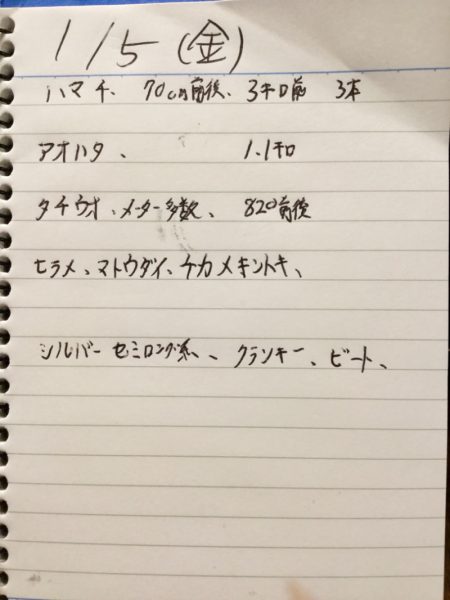 1/5(金)
ハマチ、70cm前後、3キロ前 3本
アオハタ、 1.1キロ
タチウオ、メーター多数、820前後
ヒラメ、マトウダイ、チカメキントキ、
シルバーセミロング系、、クランキー、ビート、